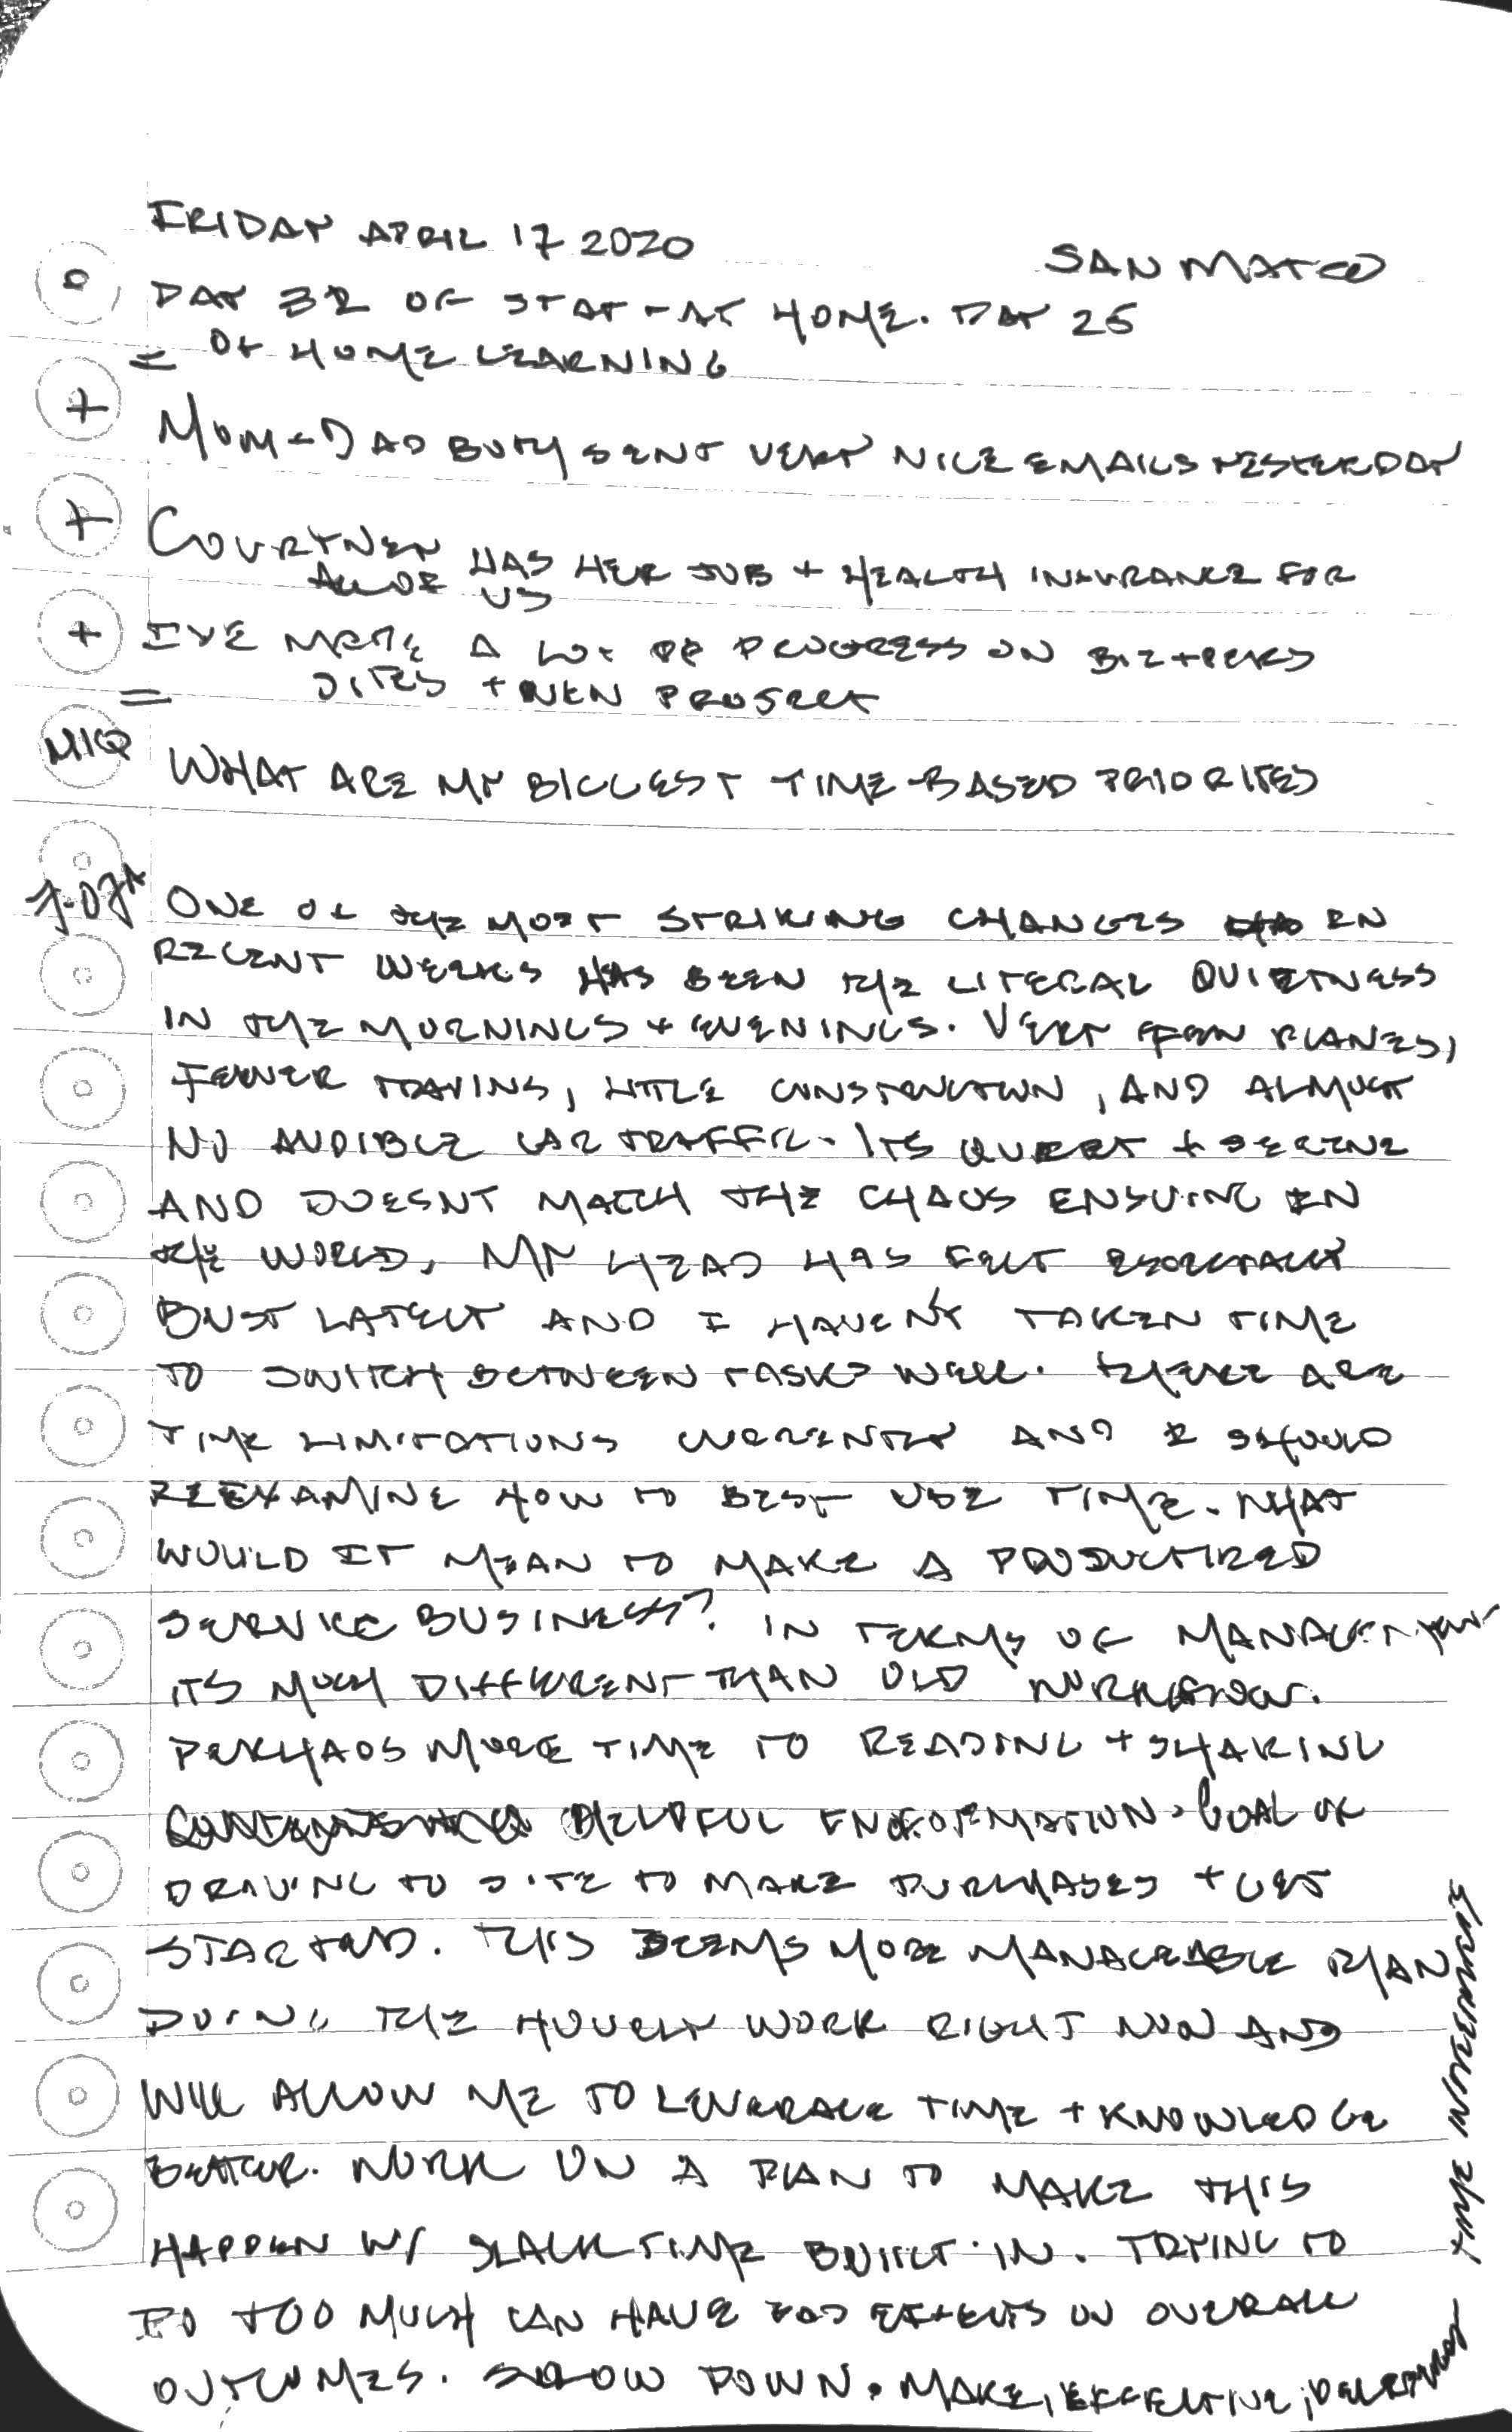 FRIDAY APRIL 17 2020
SAN MATEO
DAY 32 OF STAY-AT HOME. DAY 25
= OF HOME LEARNING
+ MOM + DAD BOTH SENT VERY NICE EMAILS YESTERDAY
+ COURTNEY HAS HER JOB + HEALTH INSURANCE FOR
ALL OF US
+ I'VE MADE A LOT OF PROGRESS ON BIZ + PERS
= SITES + NEW PROJECT
MIQ WHAT ARE MY BIGGEST TIME-BASED PRIORITES
7:07A ONE OF THE MOST STRIKING CHANGES IN
RECENT WEEKS HAS BEEN THE LITERAL QUIETNESS
IN THE MORNINGS + EVENINGS. VERY FEW PLANES,
FEWER TRAINS, LITTLE CONSTRUCTION, AND ALMOST
NO AUDIBLE CAR TRAFFIC. ITS QUIET + SERENE
AND DOESNT MATCH THE CHAOS ENSUING IN
THE WORLD. MY HEAD HAS FELT ESPECIALLY
BUSY LATELY AND I HAVEN'T TAKEN TIME
TO SWITCH BETWEEN TASKS WELL. THERE ARE
TIME LIMITATIONS CURRENTLY AND I SHOULD
REEXAMINE HOW TO BEST USE TIME. WHAT
WOULD IT MEAN TO MAKE A PRODUCTIZED
SERVICE BUSINESS? IN TERMS OF MANAGEMENT
ITS MUCH DIFFERENT THAN OLD WORKFLOW.
PERHAPS MORE TIME TO READING + SHARING
HELPFUL INFORMATION. GOAL OF
DRIVING TO SITE TO MAKE PURCHASES + GET
STARTED. THIS SEEMS MORE MANAGEABLE THAN
DOING THE HOURLY WORK RIGHT NOW AND
WILL ALLOW ME TO LEVERAGE TIME + KNOWLEDGE
BETTER. WORK ON A PLAN TO MAKE THIS
HAPPEN W/ SLACK TIME BUILT-IN. TRYING TO
DO TOO MUCH CAN HAVE BAD EFFECTS ON OVERALL
OUTCOMES. SLOW DOWN. MAKE, EFFECTIVE,
TIME INVESTMENTS